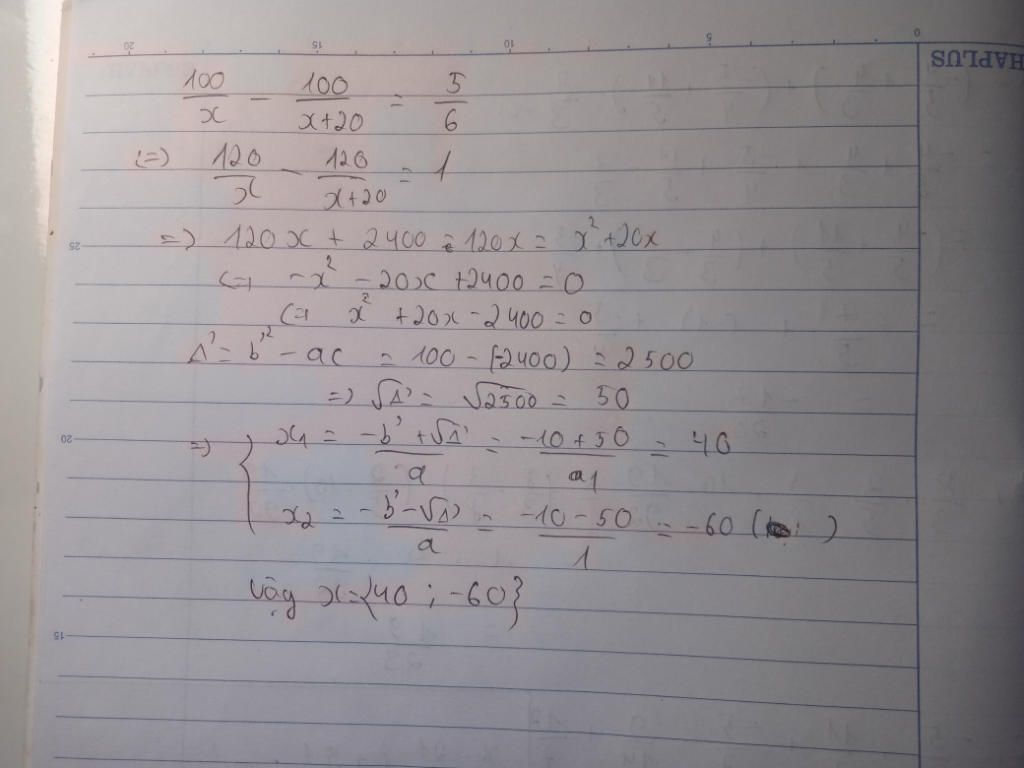 HAPLUS
0 5 10 15 20
100/x - 100/x+20 = 5/6
(=) 120/x - 120/x+20 = 1
=) 120x + 2400 - 120x = x² + 20x
25
(=) -x² - 20x + 2400 = 0
(= x² + 20x - 2400 = 0
Δ' = b'² - ac = 100 - (-2400) = 2500
=) √Δ' = √2500 = 50
20
=) { x1 = -b' + √Δ'/a = -10 + 50/1 = 40
x2 = -b' - √Δ'/a = -10 - 50/1 = -60 ( )
Vậy x = {40 ; -60}
15